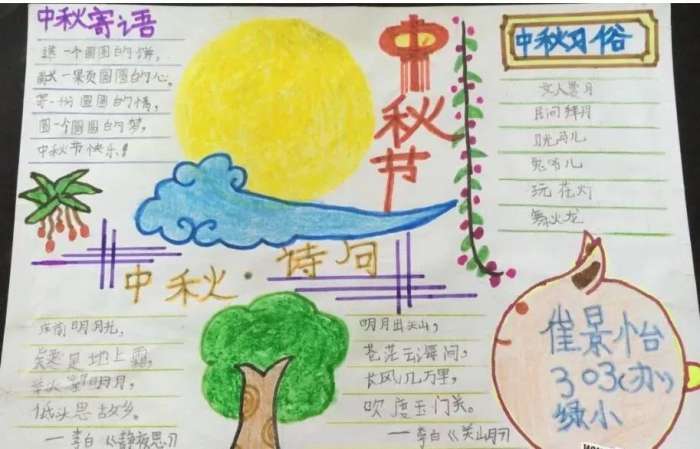 中秋寄语
送一个圆圆的饼,
献一颗圆圆的心,
圆一个圆圆的梦,
中秋节快乐!
中秋节
中秋习俗
文人赏月
民间拜月
玩花灯
舞火龙
中秋·诗词
床前明月光,
疑是地上霜,
举头望明月,
低头思故乡。
——李白《静夜思》
明月出天山,
苍茫云海间,
长风几万里,
吹度玉门关。
——李白《关山月》
崔景怡
303(办)
绿小